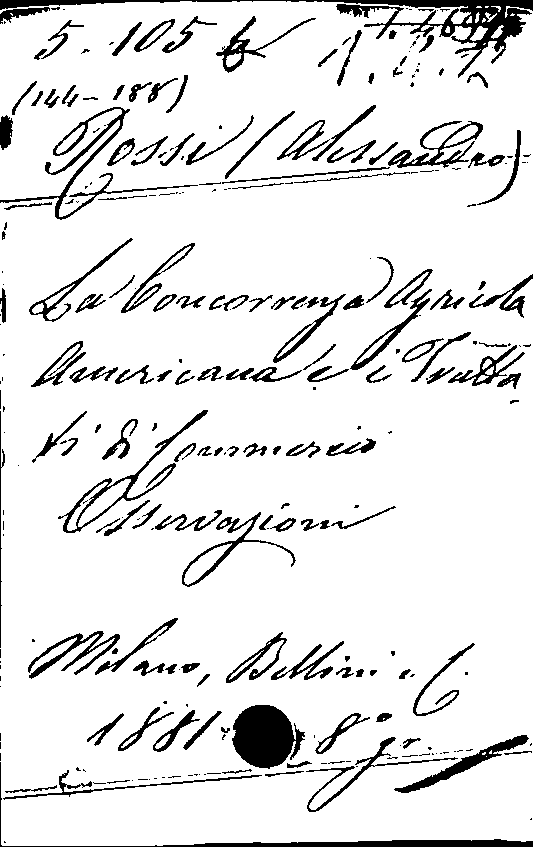 5. 105 b
(144-188)
Rossi (Alessandro)
La Concorrenza Agricola
Americana e i Tratta-
ti di Commercio
Osservazioni
Milano, Bellini e C.
1881 8° gr.